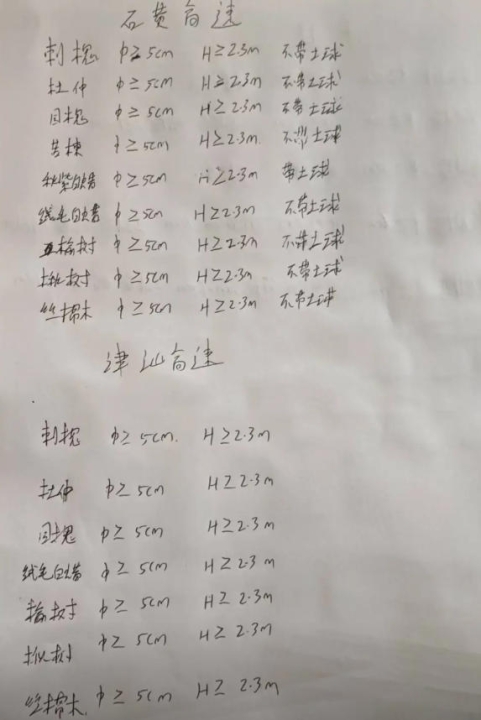 石黄高速
刺槐 φ≥5cm H≥2.3m 不带土球
杜仲 φ≥5cm H≥2.3m 不带土球
国槐 φ≥5cm H≥2.3m 不带土球
苦楝 φ≥5cm H≥2.3m 不带土球
秋紫白蜡 φ≥5cm H≥2.3m 带土球
绒毛白蜡 φ≥5cm H≥2.3m 不带土球
榆树 φ≥5cm H≥2.3m 不带土球
φ≥5cm H≥2.3m 不带土球
丝棉木 φ≥5cm H≥2.3m 不带土球
津汕高速
刺槐 φ≥5cm. H≥2.3m
杜仲 φ≥5cm H≥2.3m
国槐 φ≥5cm H≥2.3m
绒毛白蜡 φ≥5cm H≥2.3m
榆树 φ≥5cm H≥2.3m
φ≥5cm H≥2.3m
丝棉木 φ≥5cm H≥2.3m